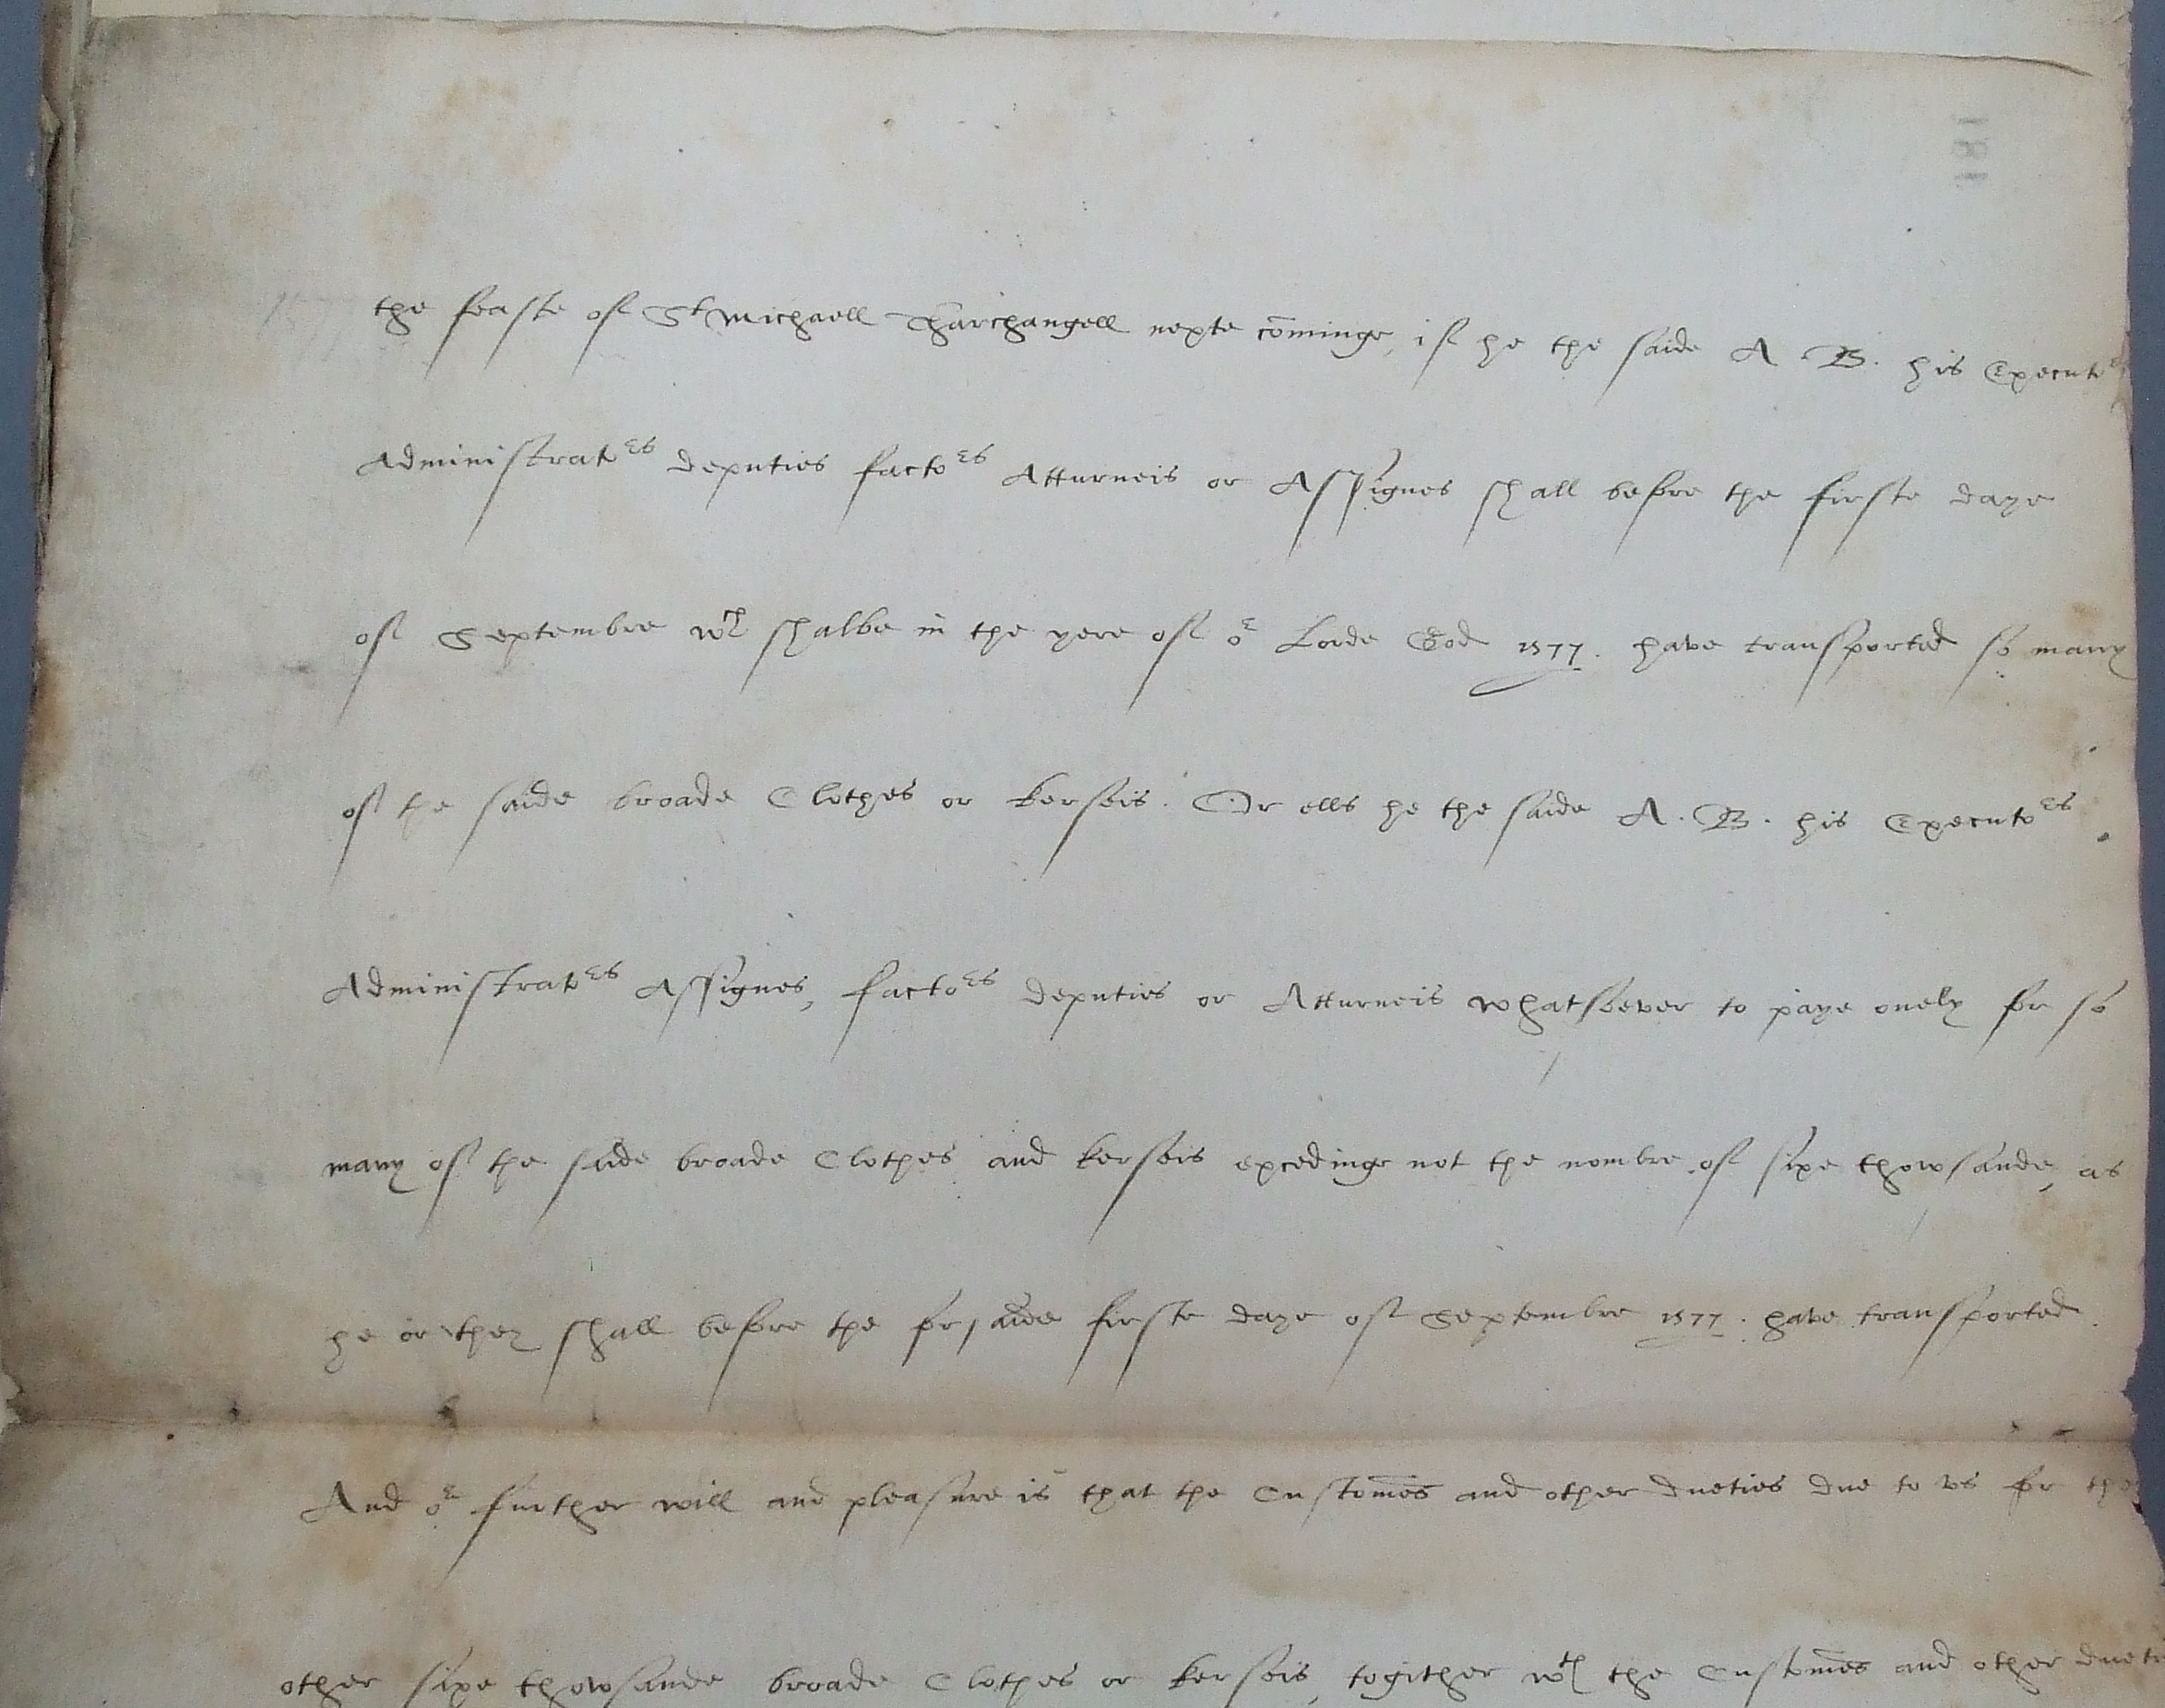 the feaste of St Michaell Tharchangell nexte cōminge, if he the saide A B. his Executors
Administrators deputies factors Atturneis or Assignes shall before the firste daye
of Septembre wch shalbe in the yere of or Lorde God 1577. have transported so many
of the saide broade Clothes or kerseis. Or ells he the saide A. B. his Executors
Administrators Assignes, factors deputies or Atturneis whatsoever to paye onely for so
many of the saide broade Clothes and kerseis excedinge not the nombre of sixe thowsande, as
he or they shall before the forsaide firste daye of Septembre 1577. have transported.
And or further will and pleasure is that the Customes and other dueties due to vs for the
other sixe thowsande broade Clothes or kerseis, togither wth the Customes and other dueties